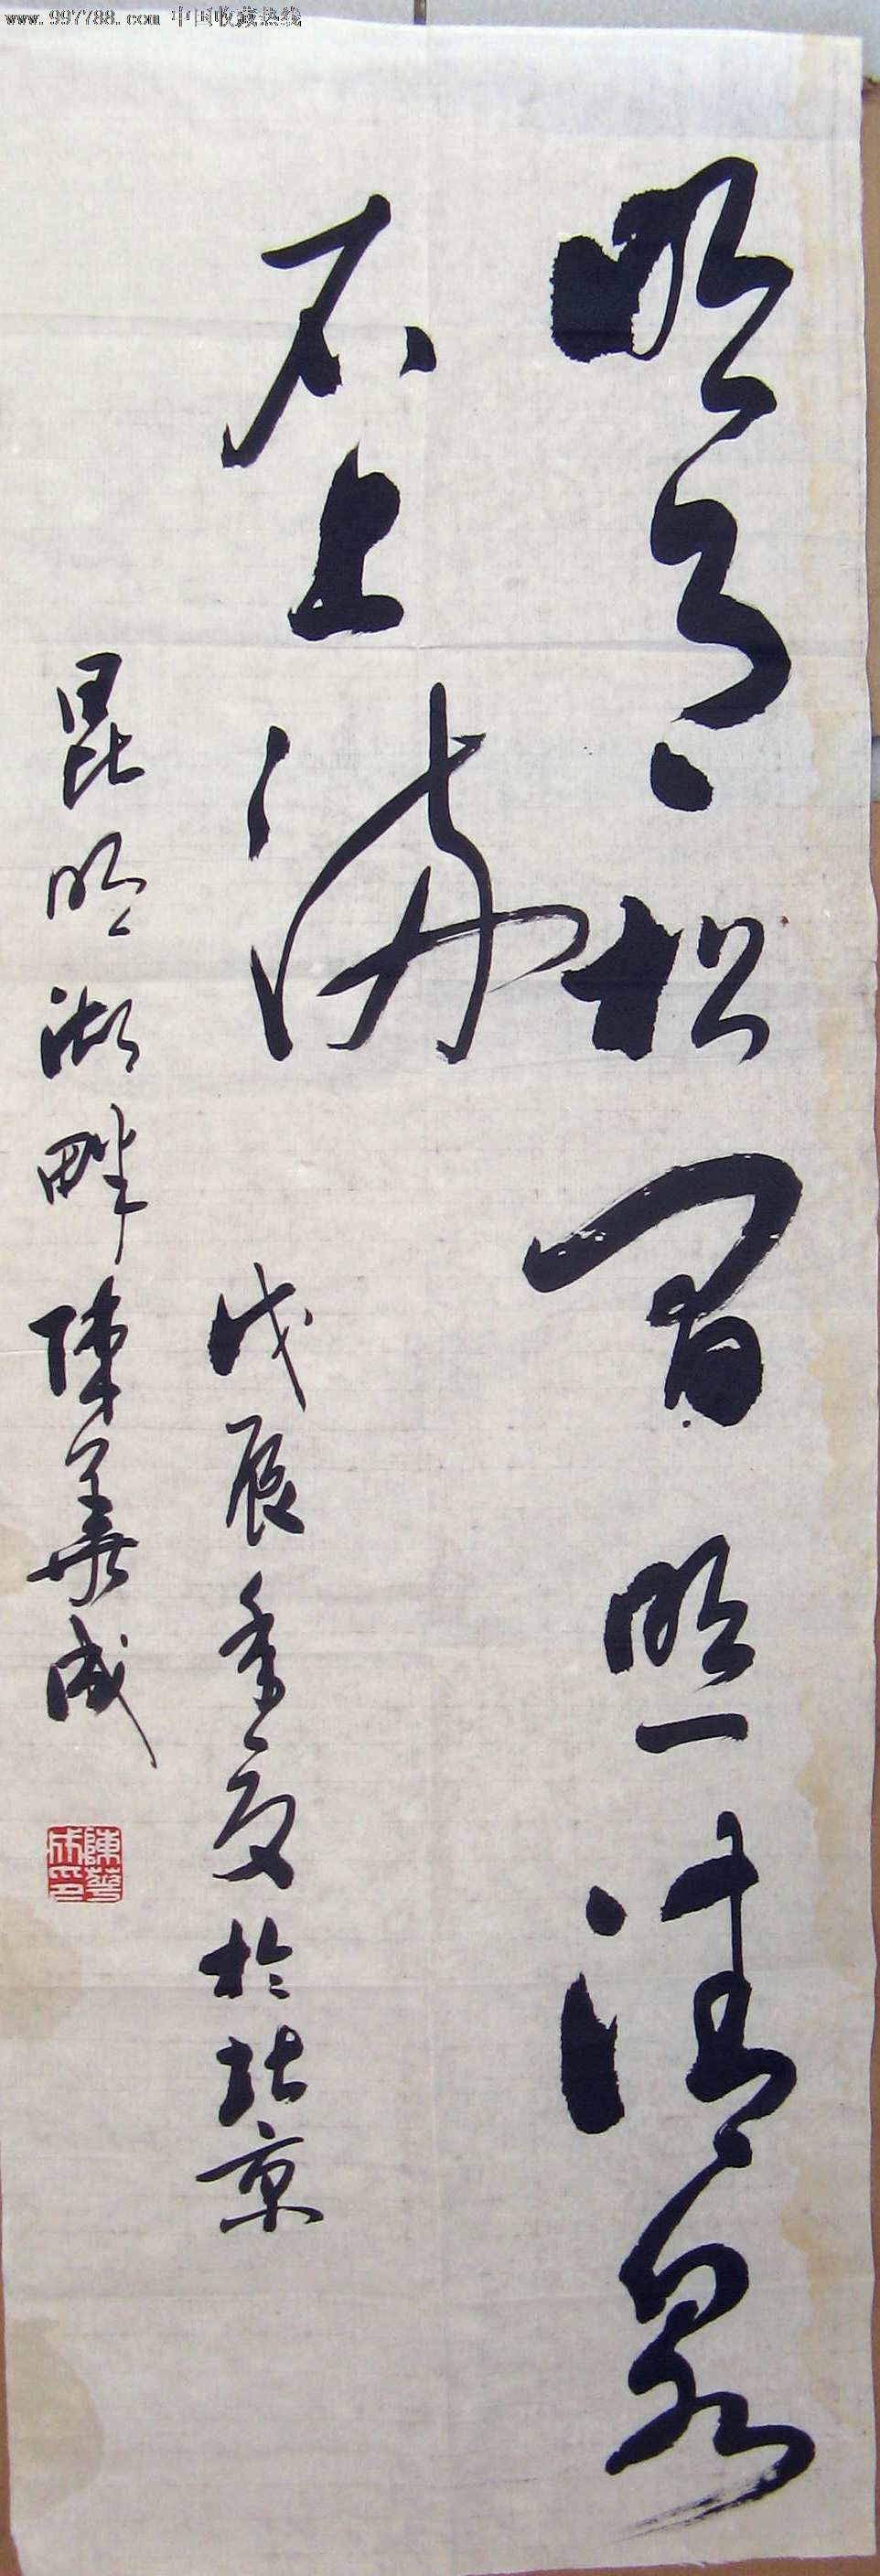 www.997788.com 中国收藏热线
明月松間照清泉
石上流
戊辰季夏於北京
昆明湖畔陳華成
陳華成印